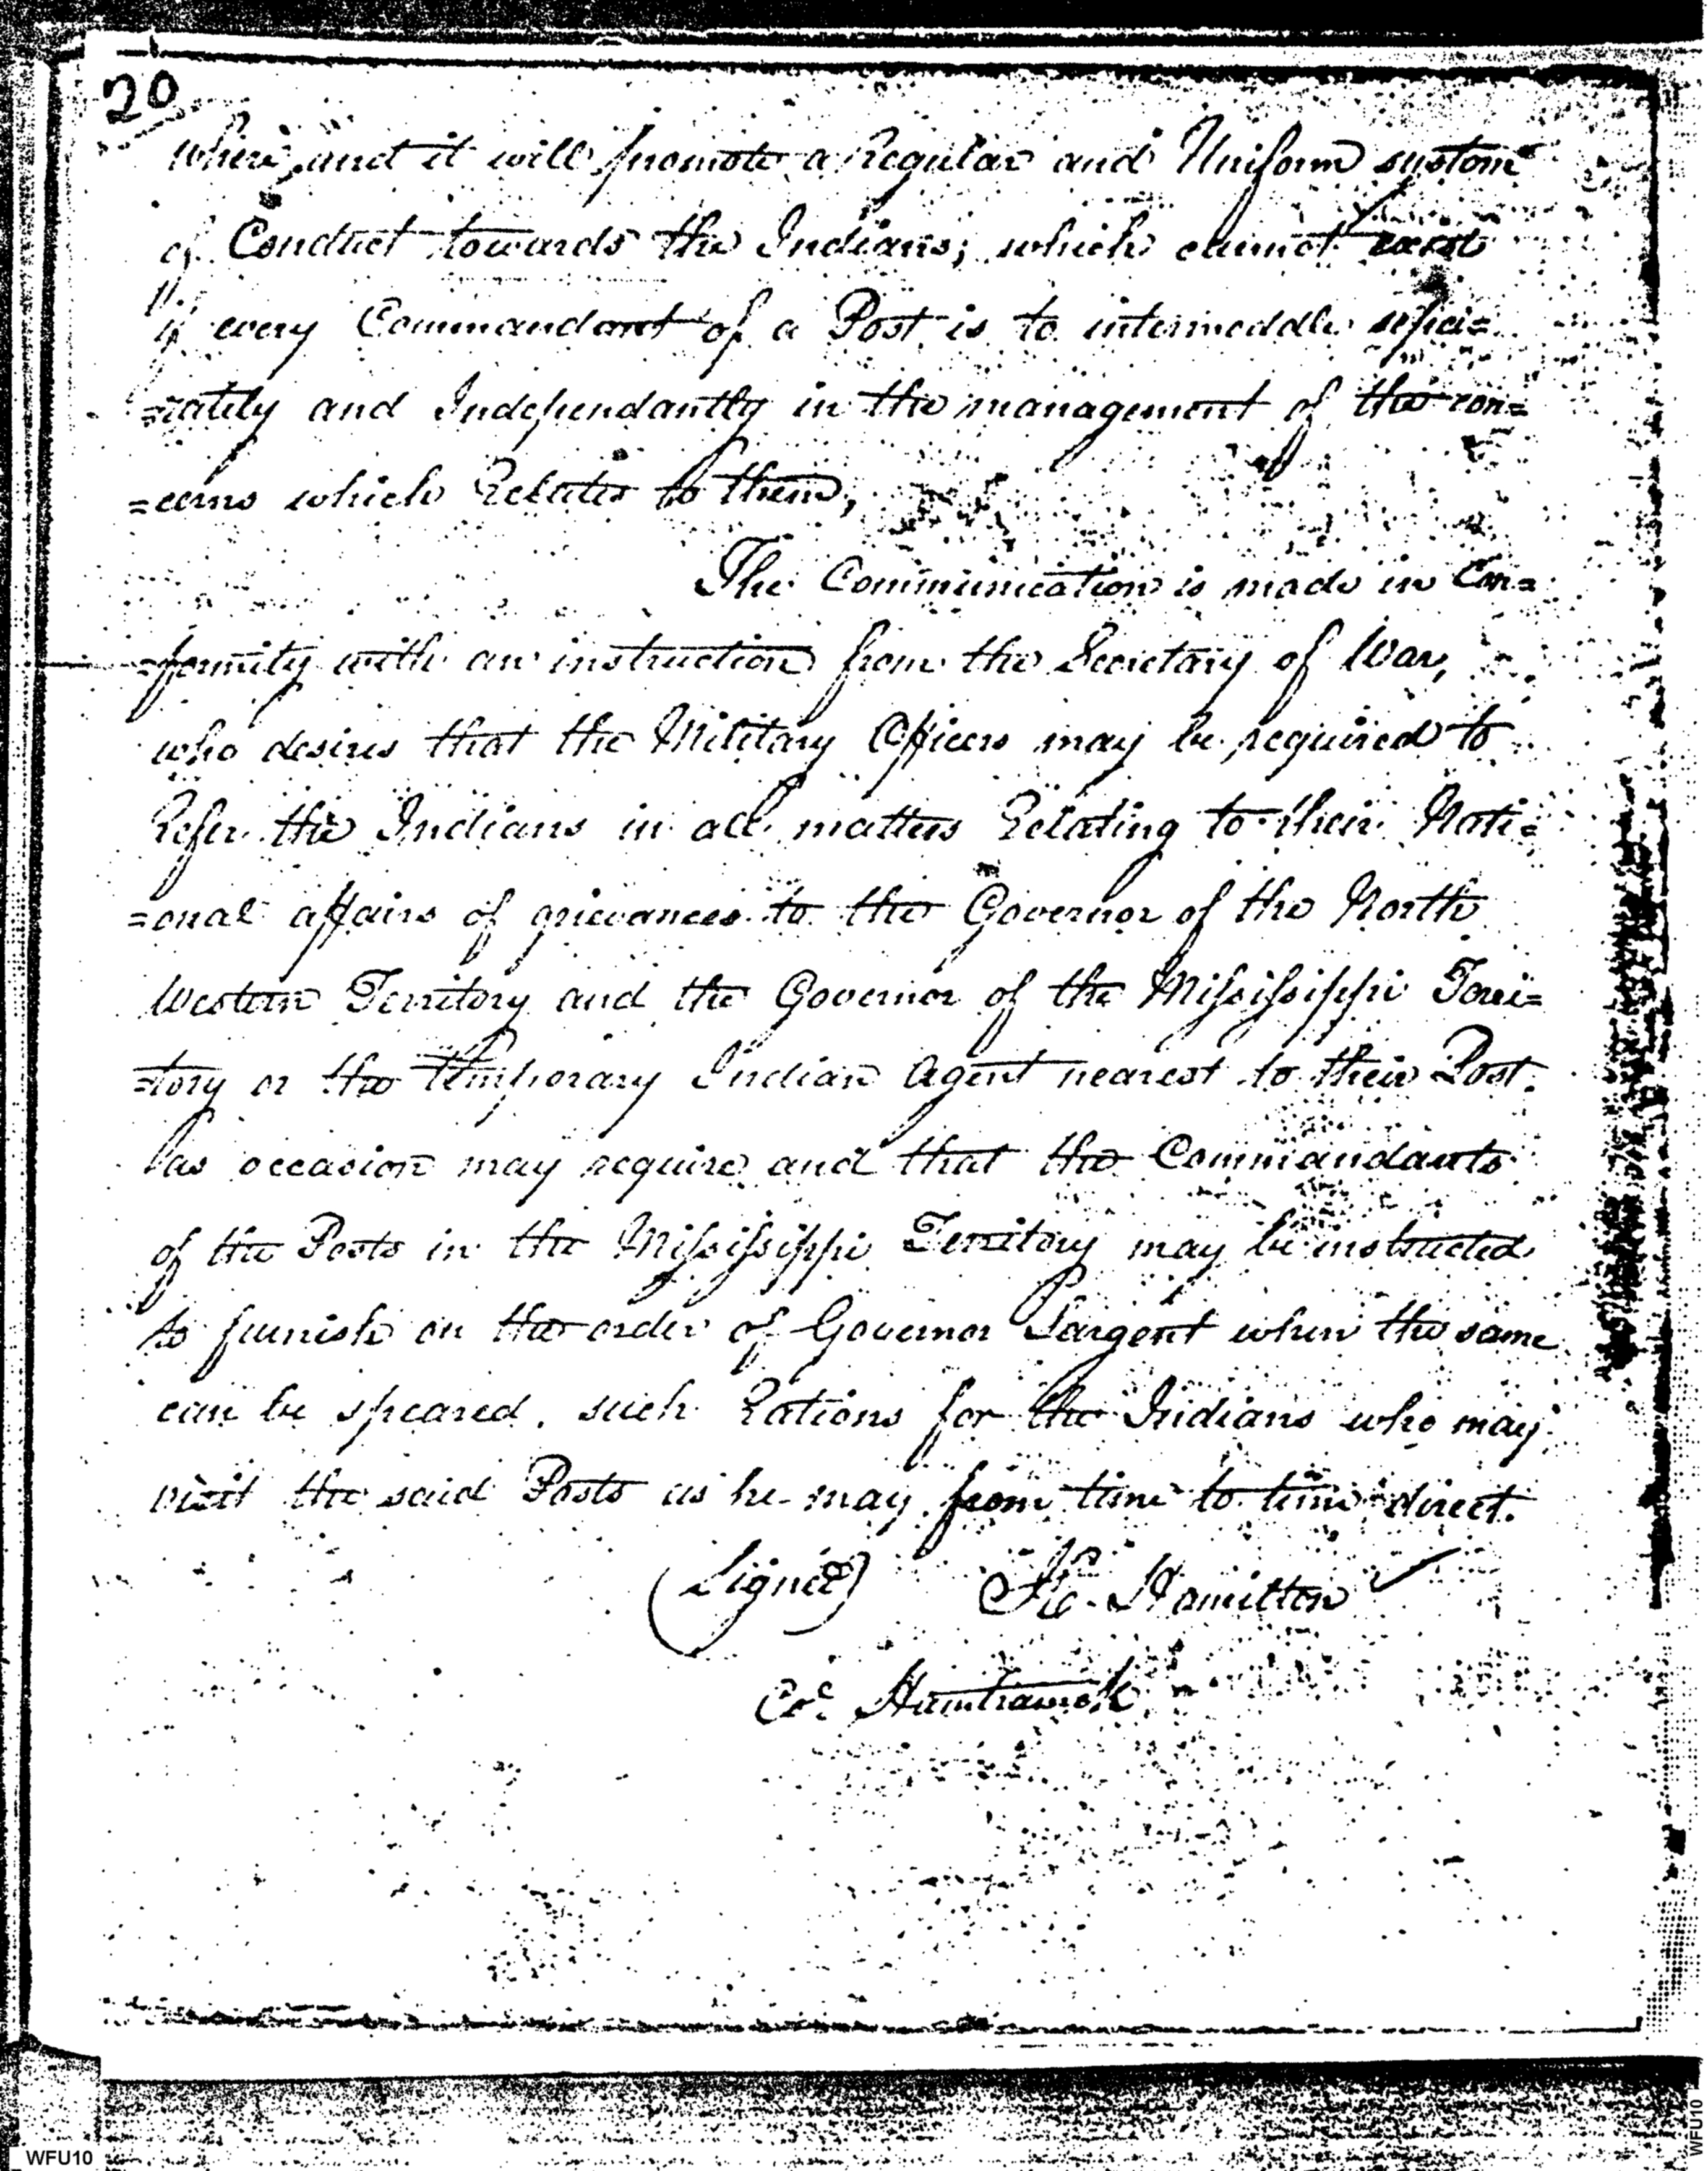 20
where and it will promote a Regular and Uniform system
of Conduct towards the Indians; which cannot exist
if every Commandant of a Post is to intermeddle sepa=
=rately and Independantly in the management of the con=
=cerns which Relates to them,
The Communication is made in Con=
=formity with an instruction from the Secretary of War,
who desires that the Military Officers may be required to
Refer the Indians in all matters Relating to their Nati=
=onal affairs of grievances to the Governor of the North
Western Territory and the Governor of the Mississippi Terri=
=tory or the temporary Indian Agent nearest to their Post.
as occasion may require and that the Commandants
of the Posts in the Mississippi Territory may be instructed
to furnish on the order of Governor Sargent when the same
can be speared, such Rations for the Indians who may
visit the said Posts as he may from time to time direct.
(Signed) Hamilton
Col. Hamtramck
WFU10
WFU10